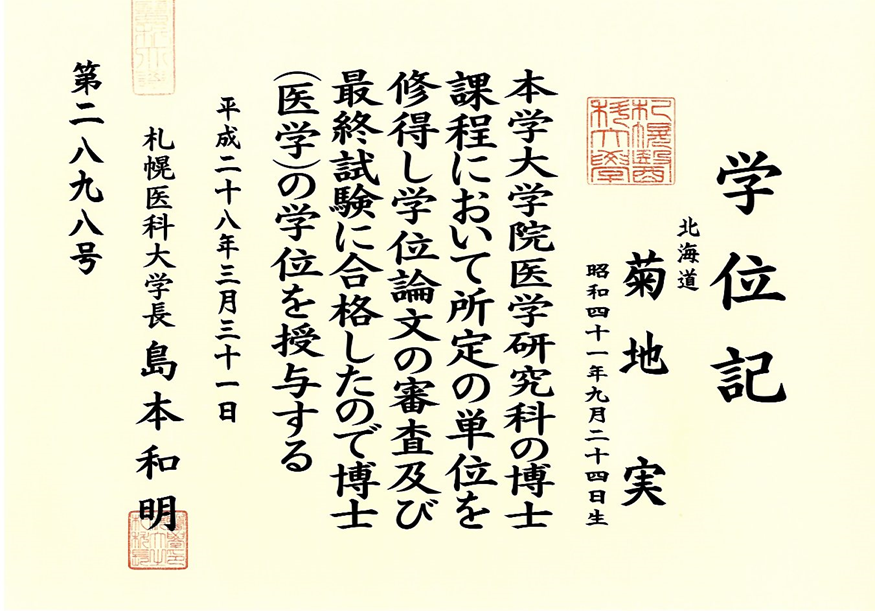 学位記
北海道
菊地 実
昭和四十一年九月二十四日生
本学大学院医学研究科の博士
課程において所定の単位を
修得し学位論文の審査及び
最終試験に合格したので博士
(医学)の学位を授与する
平成二十八年三月三十一日
札幌医科大学長 島本和明
第二八九八号